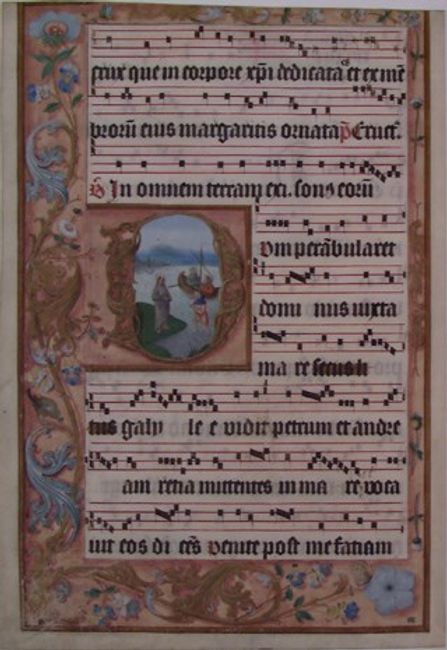 crux que in corpore xp̄i dedicata es et ex mē
brorū eius margaritis ornata p̄ Et ut c̄.
v̄ In omnem terram exi. sons eorū
Dum perābularet
domi nus iuxta
ma re secus li
tus galy le e vidit petrum et andre
am retia mittentes in ma re voca
uit eos di cēs venite post me faciam